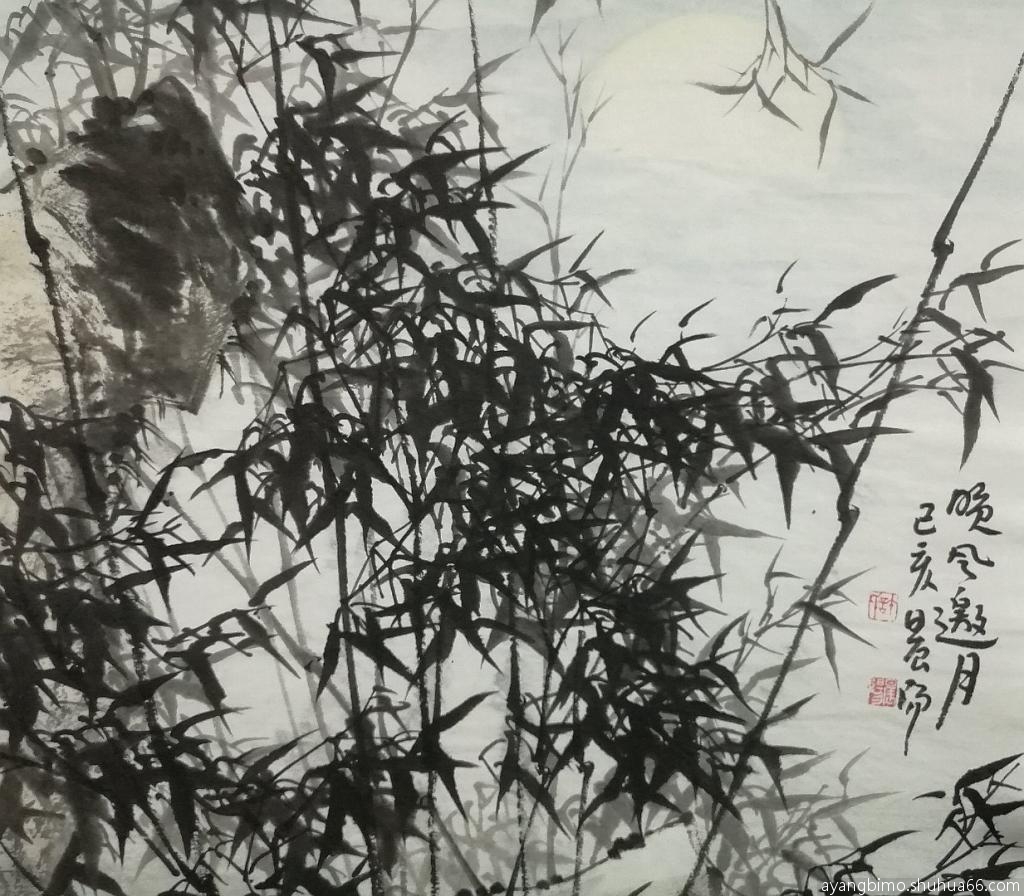 晚风邀月
己亥晨阳
ayangbimo.shuhua66.com